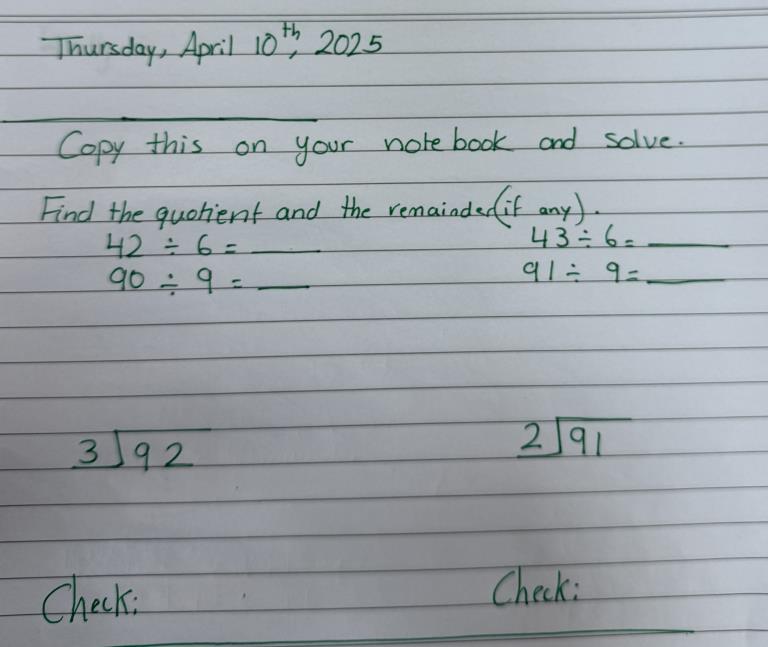 Thursday, April 10th, 2025
Copy this on your notebook and solve.
Find the quotient and the remainder (if any).
42 ÷ 6 = ____ 43 ÷ 6 = ____
90 ÷ 9 = ____ 91 ÷ 9 = ____
3)92 2)91
Check: Check: